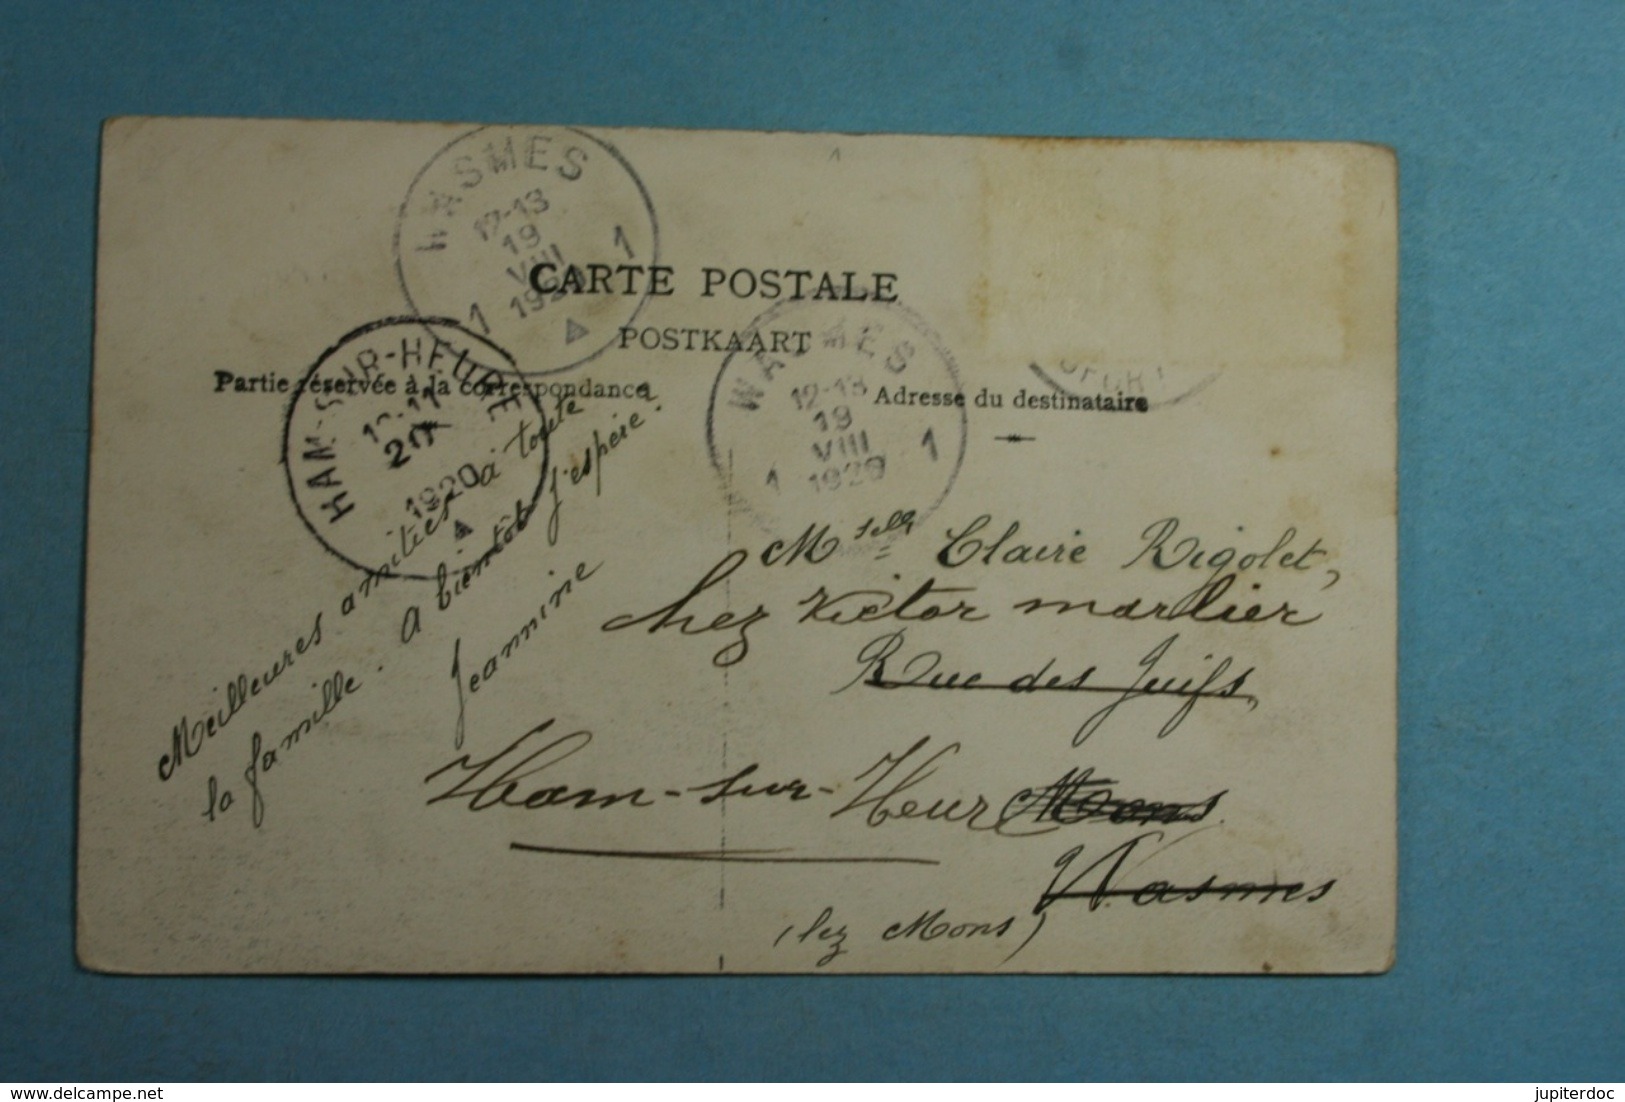 WASMES
12-13
19
VIII
1920
1 1
CARTE POSTALE
POSTKAART
Partie réservée à la correspondance
Adresse du destinataire
HAM-SUR-HEURE
10-11
20
1920
WASMES
12-13
19
VIII
1920
1 1
Meilleures amitiés à toute
la famille. A bientôt j'espère.
Jeannine
Mselle Claire Rigolet,
chez Victor marlier
Rue des Juifs,
Ham-sur-Heure
Mons.
Wasmes
(lez Mons)
www.delcampe.net
jupiterdoc